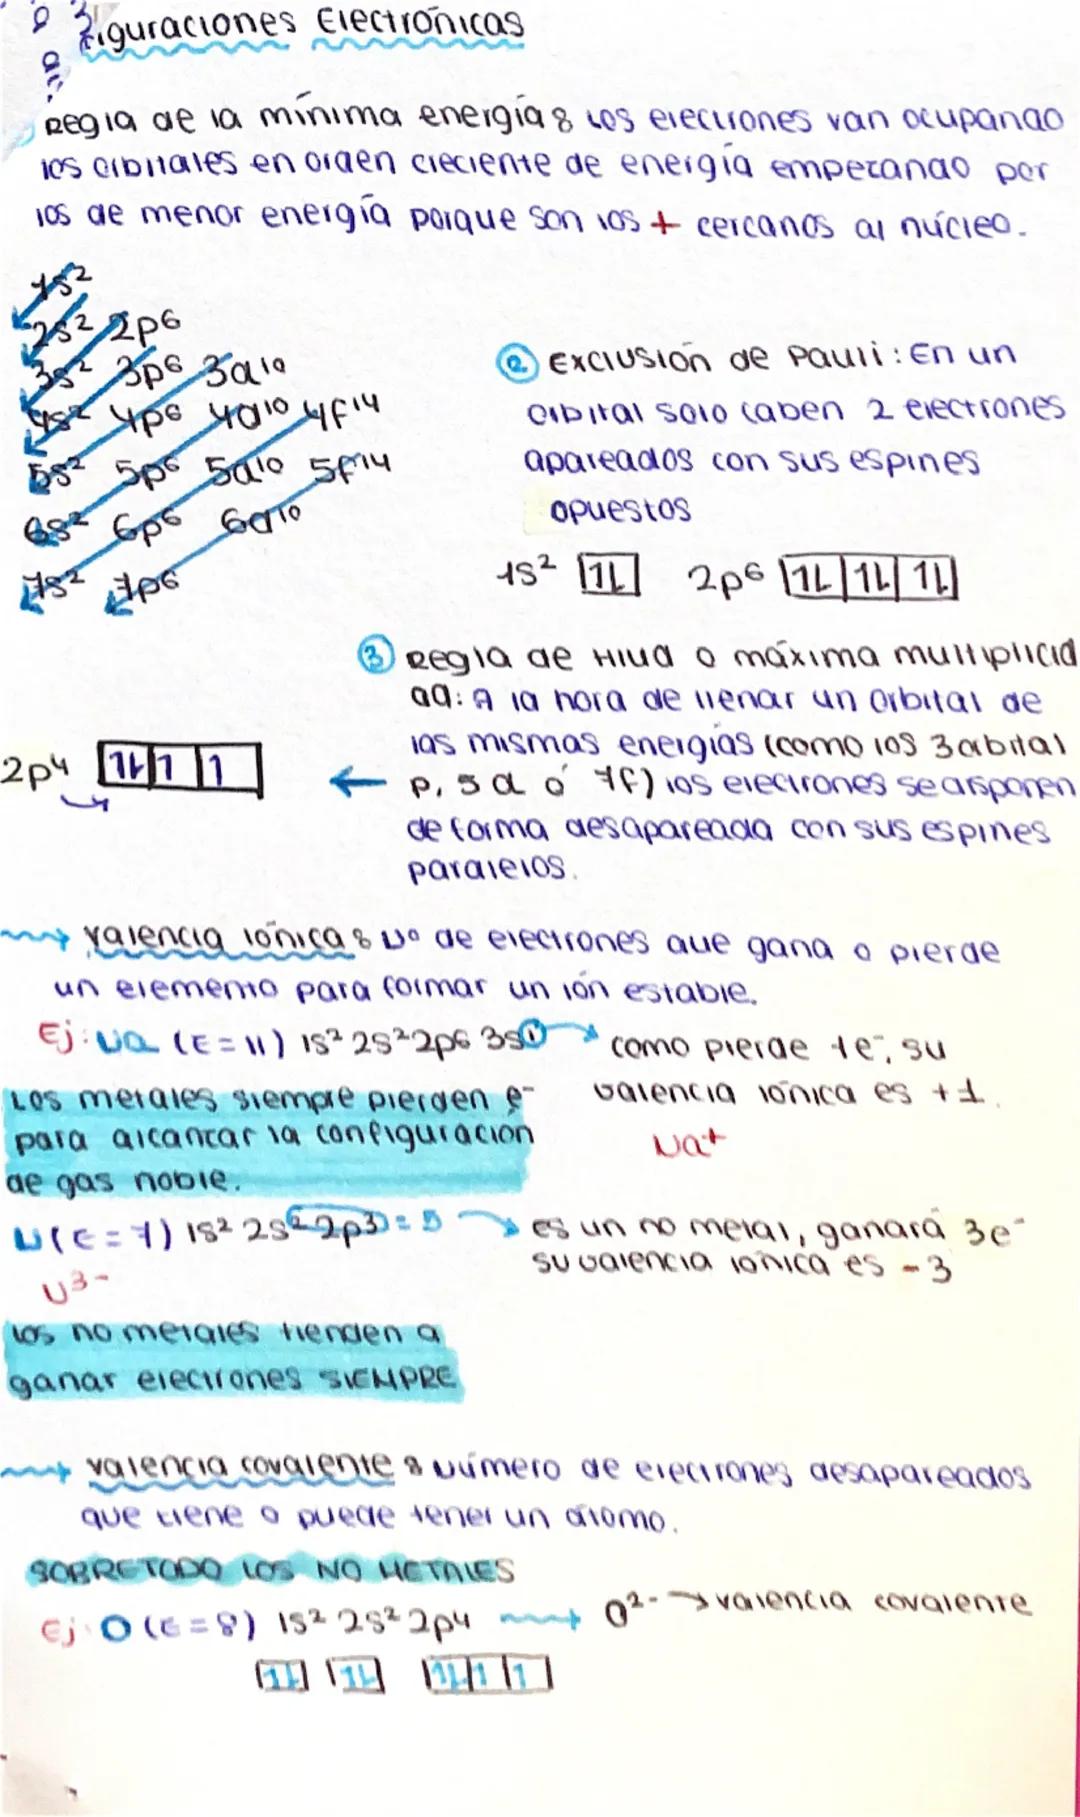 Figuraciones Electrónicas
Regla de la mínima energía: Los electrones van ocupando
los orbitales en orden creciente de energía empezando por
los de menor energía porque son los + cercanos al núcleo.
1s²
2s² 2p6
3s² 3p6 3d10
4s² 4p6 4d10 4f14
5s² 5p6 5d10 5f14
6s² 6p6 6d10
7s² 7p6
② Exclusión de Pauli: En un
orbital solo caben 2 electrones
apareados con sus espines
opuestos
1s² 1L 2p6 1L 1L 1L
③ Regla de Hund o máxima multiplicid
ad: A la hora de llenar un orbital de
las mismas energías (como los 3 orbital
p, 5 d ó 7f) los electrones se disponen
de forma desapareada con sus espines
paralelos.
2p4 1L 1 1
Valencia iónica: Nº de electrones que gana o pierde
un elemento para formar un ión estable.
Ej: Na (E=11) 1s² 2s² 2p6 3s1
como pierde 1e-, su
valencia iónica es +1.
Na+
Los metales siempre pierden e-
para alcanzar la configuración
de gas noble.
N (E=7) 1s² 2s² 2p3 = 5
es un no metal, ganará 3e-
su valencia iónica es -3
N3-
Los no metales tienden a
ganar electrones SIEMPRE
Valencia covalente: Número de electrones desapareados
que tiene o puede tener un átomo.
SOBRETODO LOS NO METALES
Ej: O (E=8) 1s² 2s² 2p4
O2- → valencia covalente
1L 1L 1L 1 1